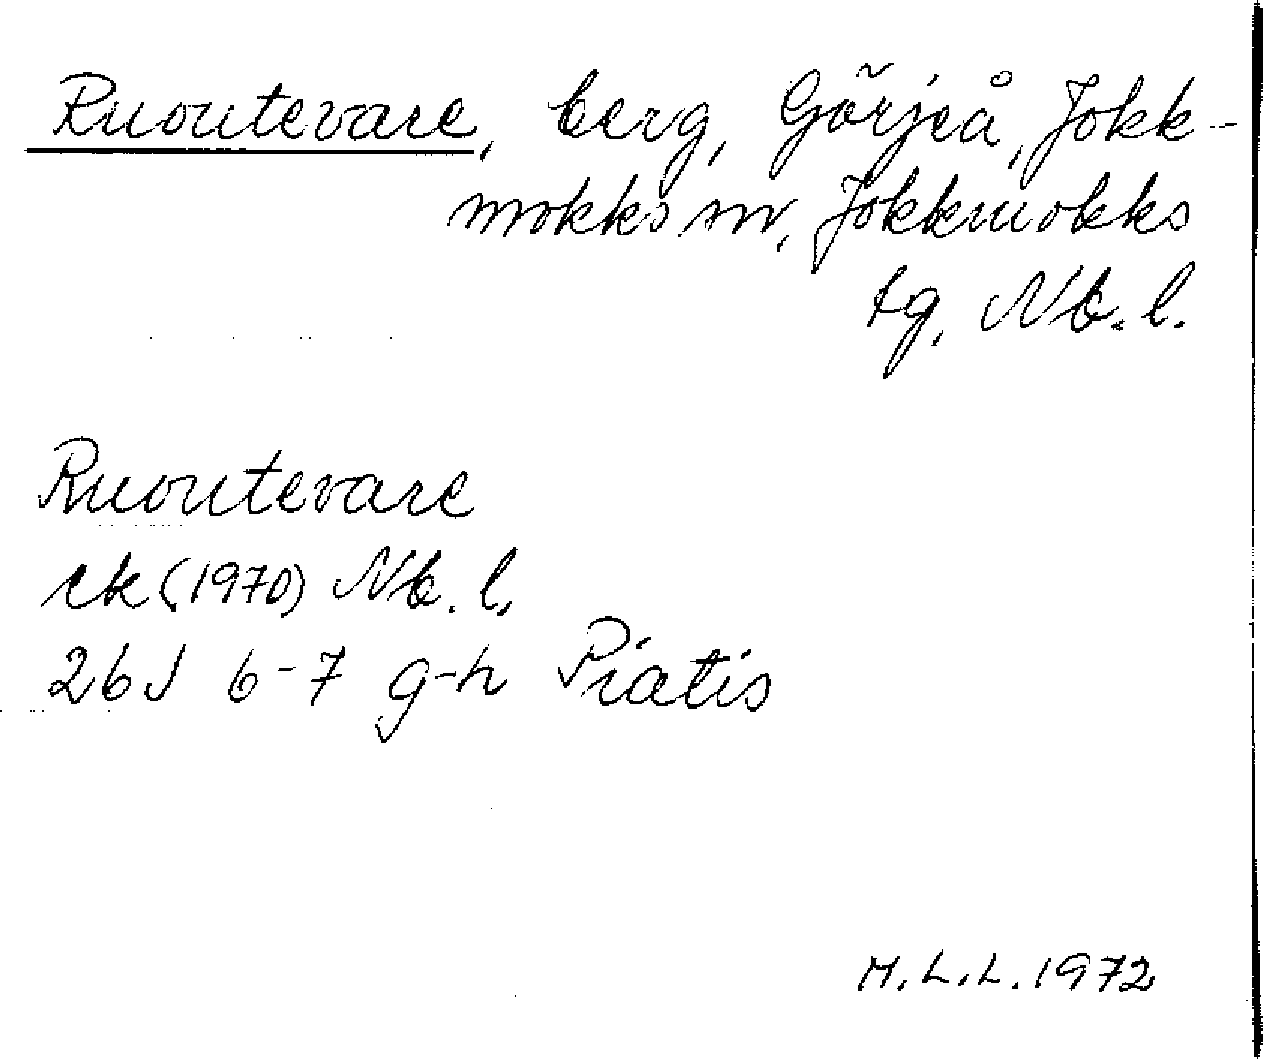 Ruoutevare, berg, Görjeå, Jokk-
mokks sn, Jokkmokks
tg, Nb. l.
Ruoutevare
ek (1970) Nb. l.
26J 6-7 g-h Piatis
M.L.L. 1972